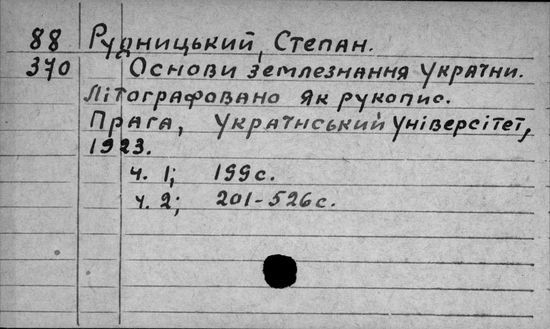 88 Рудницький, Степан.
370 Основи землезнання України.
Літографовано як рукопис.
Прага, Український Універсітет,
1923.
ч. 1; 199 с.
ч. 2; 201-526 с.